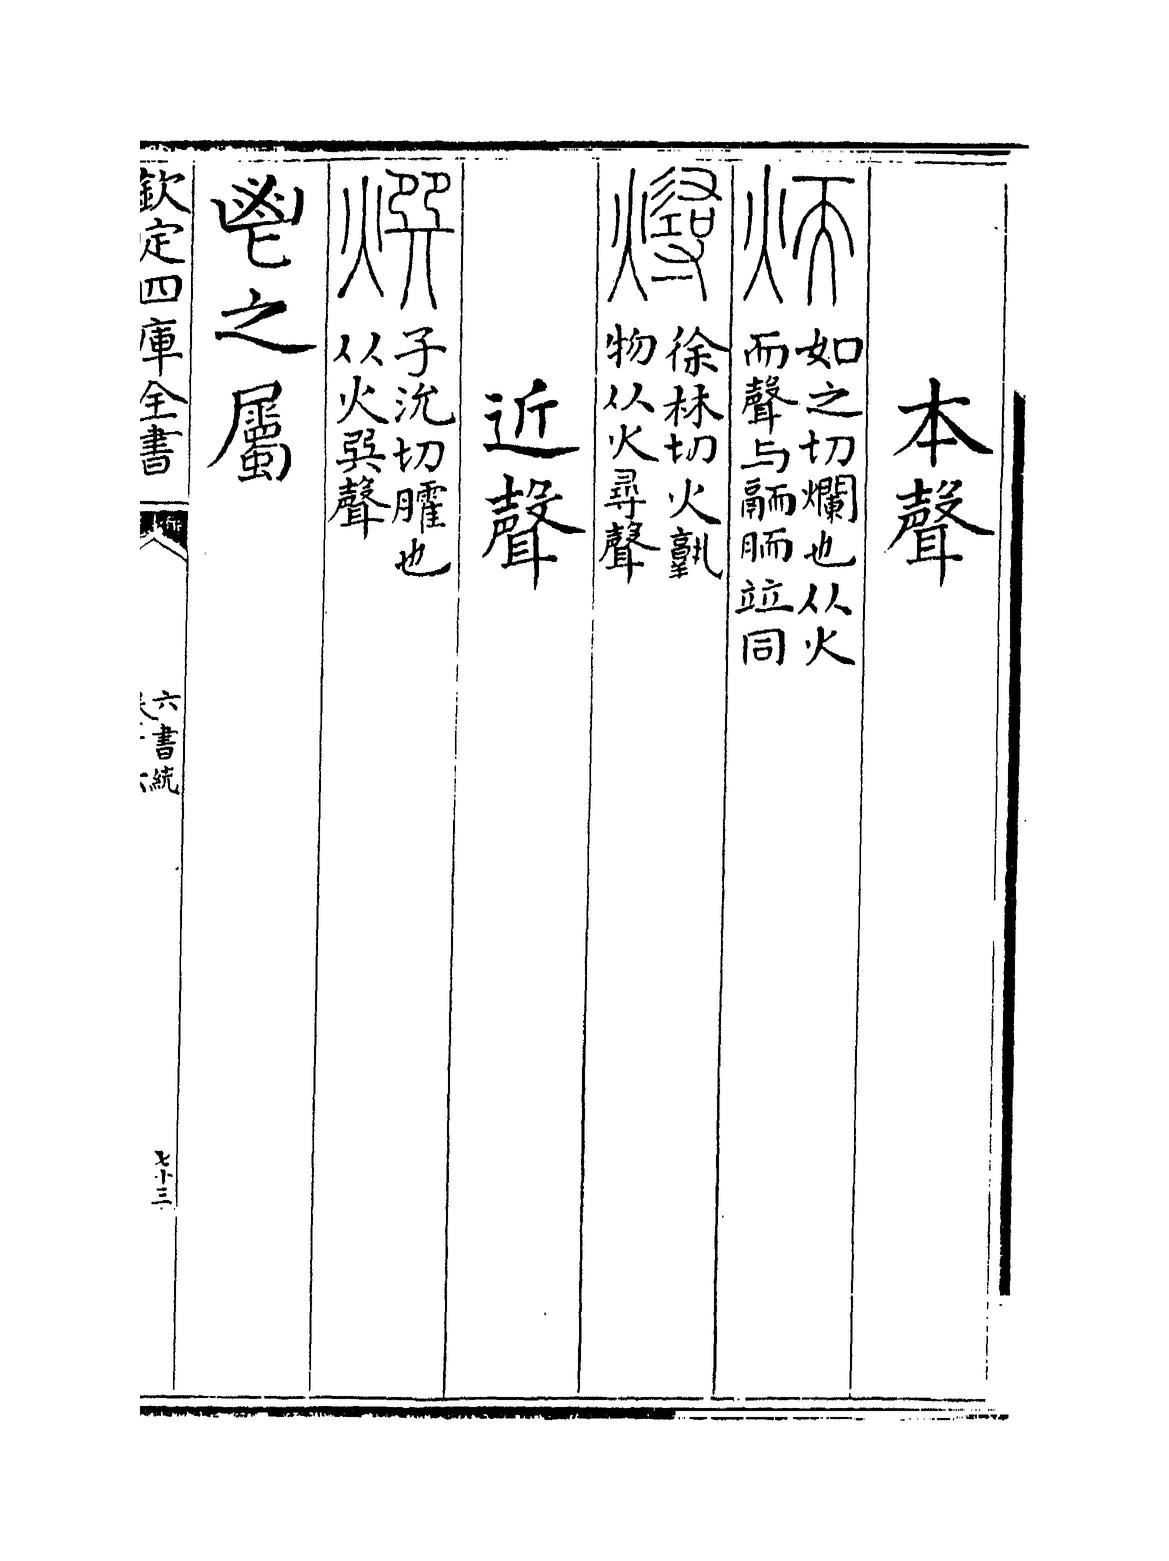 本聲
如之切爛也从火
而聲与胹竝同
徐林切火
物从火尋聲
近聲
子沇切臛也
从火巺聲
鬯之屬
欽定四庫全書
六書統
七十三